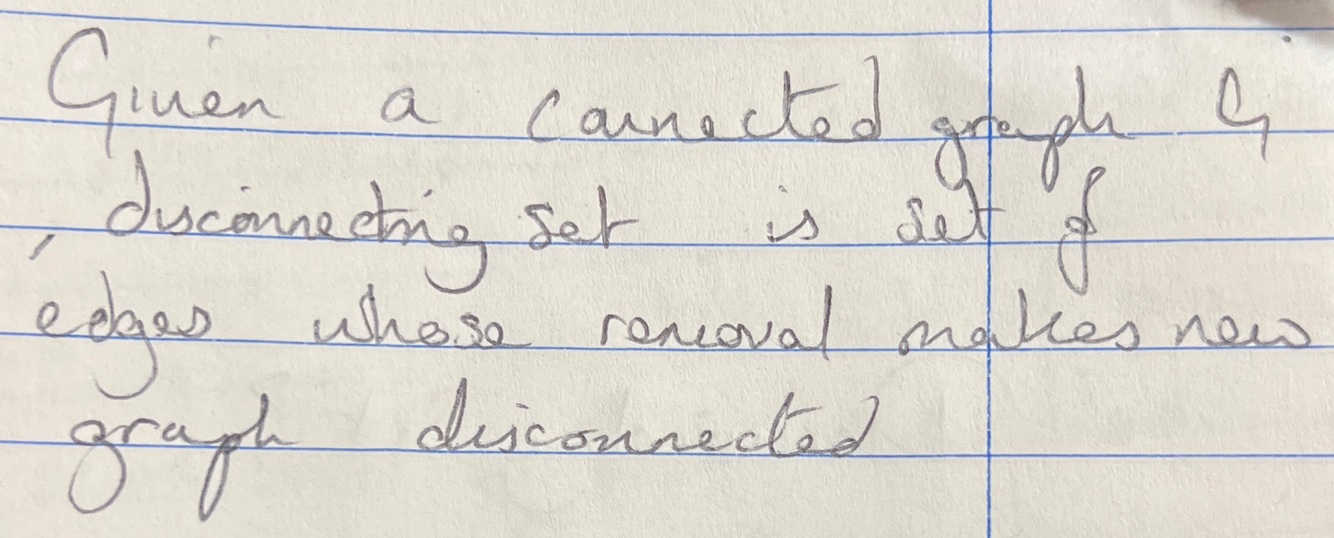 Given a connected graph G
, disconnecting set is set of
edges whose removal makes new
graph disconnected